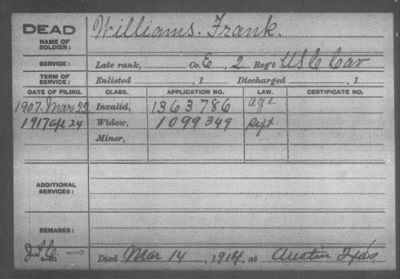 DEAD
NAME OF SOLDIER: Williams. Frank.
SERVICE: Late rank, Co. E, 2 Reg't U S C Cav
TERM OF SERVICE: Enlisted , 1 Discharged , 1
DATE OF FILING. CLASS. APPLICATION NO. LAW. CERTIFICATE NO.
1907. Mar 22 Invalid, 1363786 age
1917 Apr 24 Widow, 1099349 Sept
Minor,
ADDITIONAL SERVICES:
REMARKS:
Died Mar 14, 1914, at Austin Texas